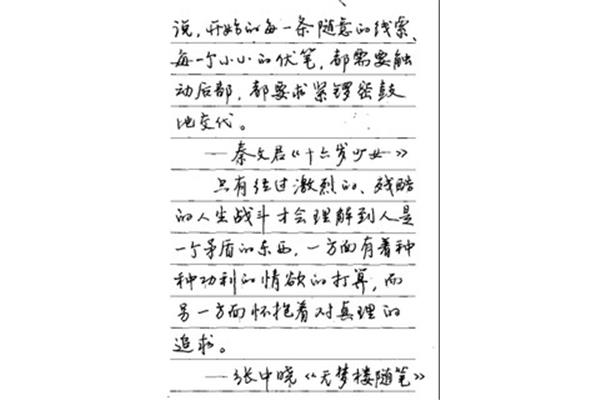 说，开始的每一条随意的线索、
每一个小小的伏笔，都需要触
动后部，都要求紧锣密鼓
地交代。
——秦文君《十六岁少女》
只有经过激烈的、残酷
的人生战斗才会理解到人是
一个矛盾的东西，一方面有着种
种功利的情欲的打算，而
另一方面怀抱着对真理的
追求。
——张中晓《无梦楼随笔》